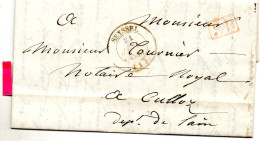 A Monsieur
Monsieur Tournier
Notaire Royal
A Culloz
Dep.t de l'ain
SEYSSEL